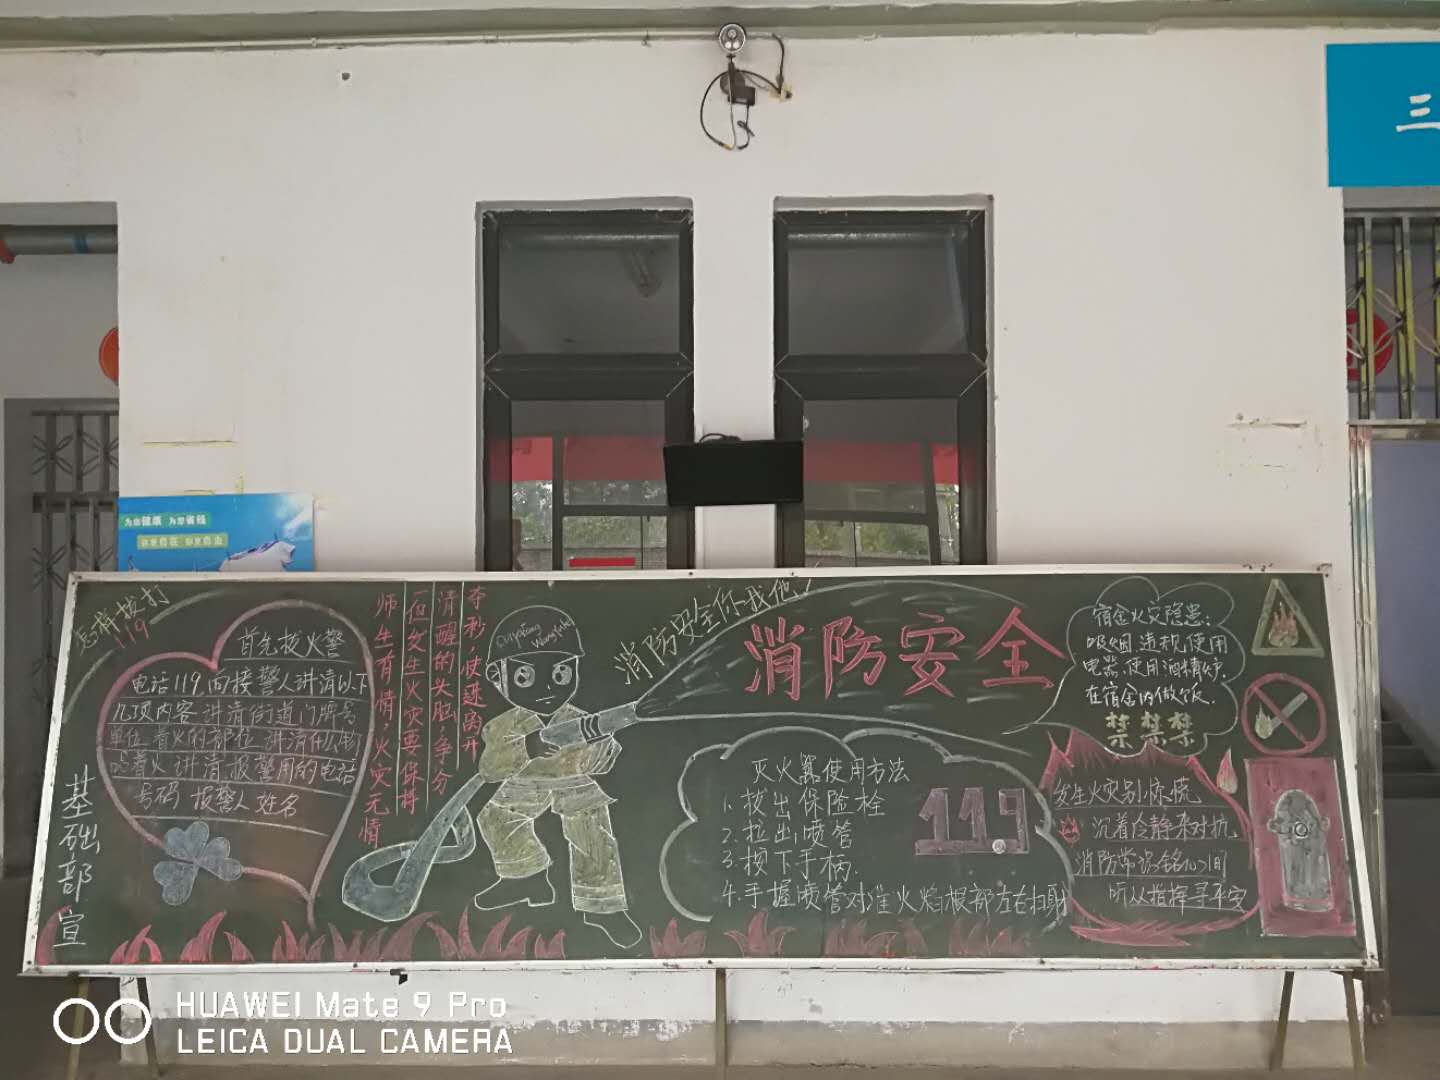 三
为您健康 为您省钱
怎样拨打
119
首先拨火警
电话119向接警人讲清以下
几项内容 讲清街道门牌号
单位 着火的部位 讲清什么物
品着火 讲清报警用的电话
号码 报警人姓名
基础部宣
师生有情,火灾无情
一但发生火灾要保持
清醒的头脑,争分
夺秒,快速离开
消防安全你我他!
消防安全
灭火器使用方法
1.拔出保险栓
2.拉出喷管
3.按下手柄.
4.手握喷管对准火焰根部左右扫射
119
宿舍火灾隐患:
吸烟 违规使用
电器.使用酒精炉.
在宿舍内做饭.
禁禁禁
发生火灾别惊慌
沉着冷静来对抗
消防常识铭心间
听从指挥寻平安
HUAWEI Mate 9 Pro
LEICA DUAL CAMERA